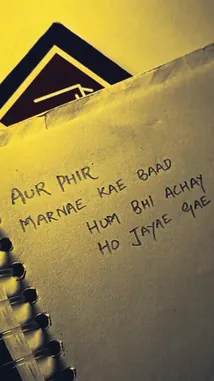 AUR PHIR
MARNAE KAE BAAD
HUM BHI ACHAY
HO JAYAE GAE